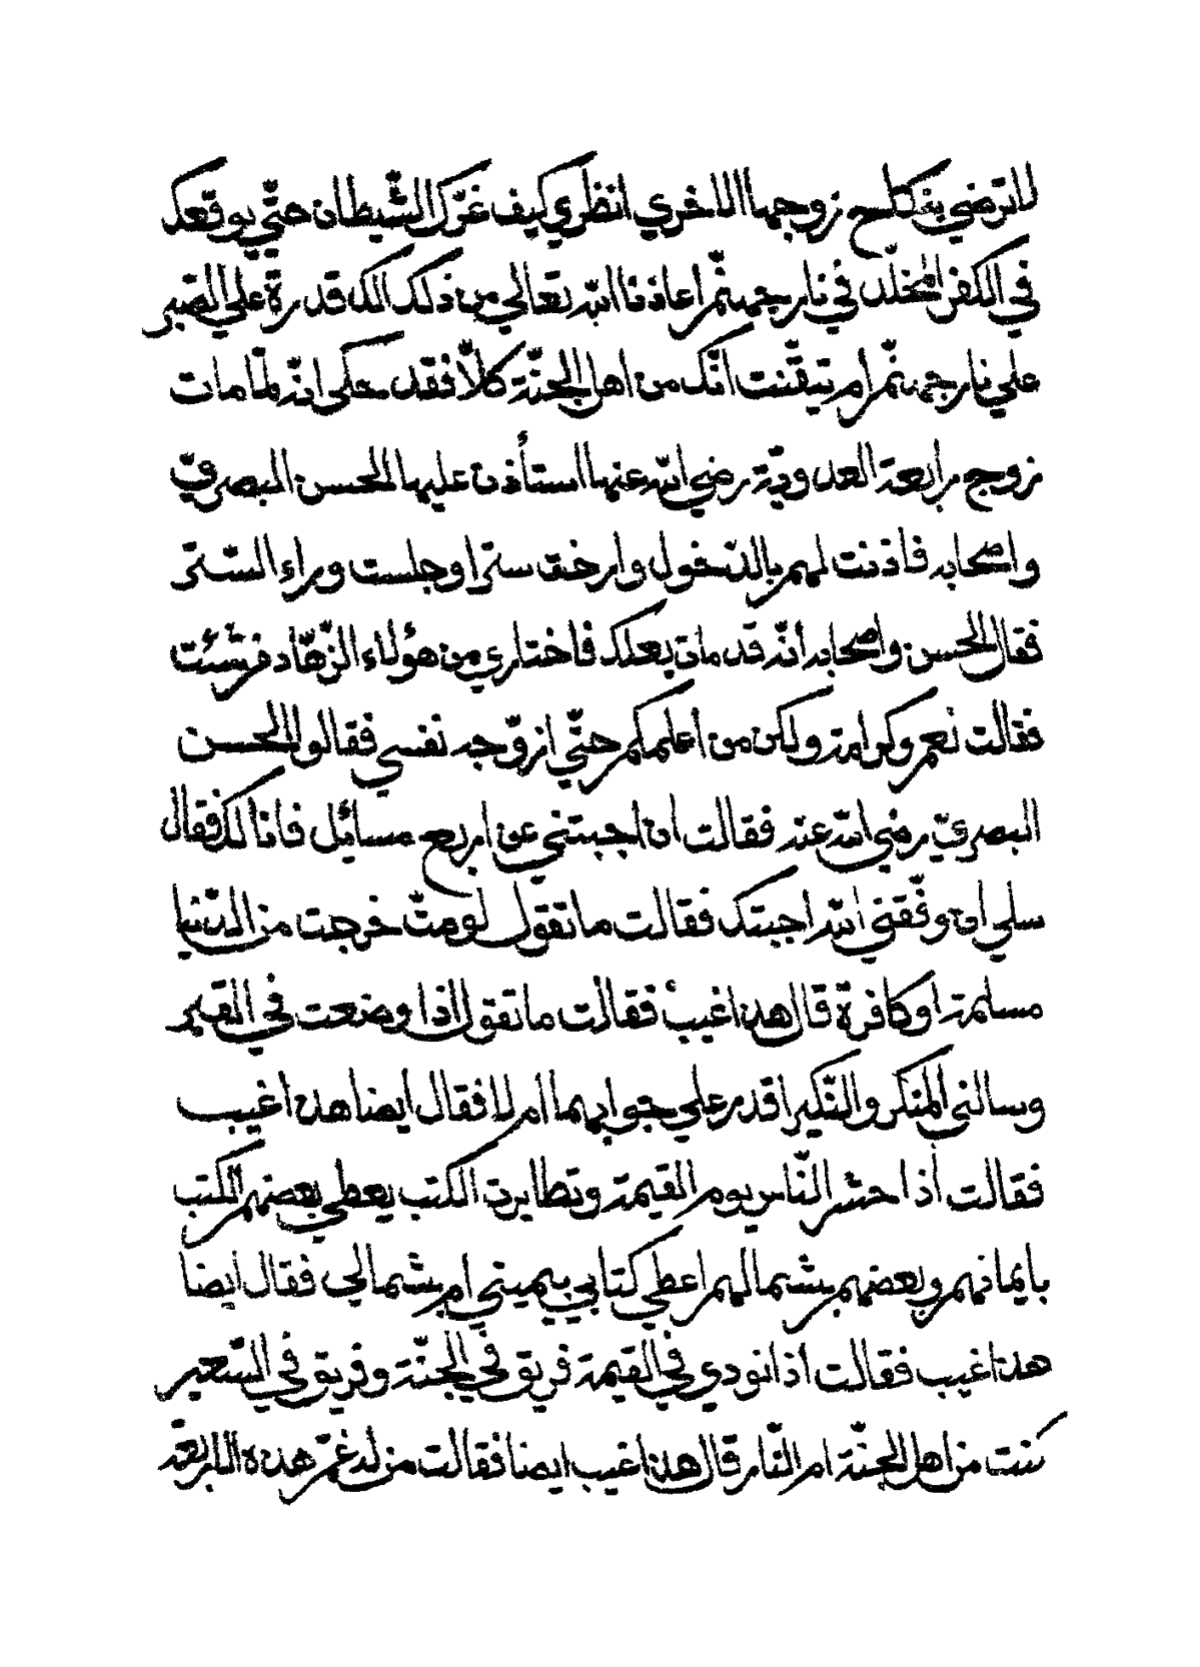 لا ترضي بنكاح زوجها الاخري انظري كيف غرّك الشّيطان حتّي يوقعك
في الكفر المخلّد في نار جهنّم اعاذنا الله تعالي من ذلك الك قدرة علي الصّبر
علي نار جهنّم ام تيقّنت انّك من اهل الجنّة كلّا فقد حكي انّه لمّا مات
زوج رابعة العدويّة رضي الله عنها استأذن عليها الحسن البصريّ
واصحابه فاذنت لهم بالدّخول وارخت سترا وجلست وراء السّتر
فقال الحسن واصحابه أنّه قد مات بعلك فاختاري من هؤلاء الزّهّاد من شئت
فقالت نعم وكرامة ولكن من أعلمكم حتّي ازوّجه نفسي فقالوا الحسن
البصريّ رضي الله عنه فقالت ان اجبتني عن اربع مسائل فانا لك فقال
سلي ان وفّقني الله اجبتك فقالت ما تقول لو متّ خرجت من الدّنيا
مسلمة او كافرة قال هذا غيب فقالت ما تقول اذا وضعت في القبر
وسالني المنكر والنّكير اقدر علي جوابهما ام لا فقال أيضا هذا غيب
فقالت أذا حشر النّاس يوم القيمة وتطايرت الكتب يعطي بعضهم الكتب
بايمانهم وبعضهم بشمالهم اعطي كتابي بيميني ام بشمالي فقال أيضا
هذا غيب فقالت أذا نودي في القيمة فريق في الجنّة وفريق في السّعير
كنت من اهل الجنّة ام النّار قال هذا غيب ايضا فقالت من له غمّ هذه الاربعة